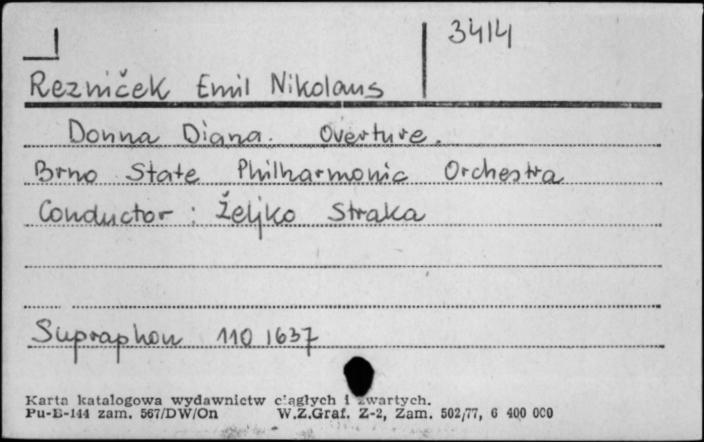 3414
Rezniček Emil Nikolaus
Donna Diana. Overture.
Brno State Philharmonic Orchestra
Conductor: Željko Straka
Supraphon 110 1637
Karta katalogowa wydawnictw ciągłych i zwartych.
Pu-B-144 zam. 567/DW/On W.Z.Graf. Z-2, Zam. 502/77, 6 400 000